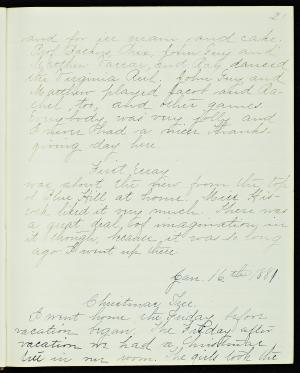 21
and for ice cream and cake.
Prof. Gallaudet, John Guy and
Matthew Farrar, and Ray danced
the Virginia Reel, John Guy and
Matthew played Jacob and Ra-
chel, too, and other games
Everybody was very jolly and
I never had a nicer thanks-
giving day here.
First Essay
was about the view from the top
of Blue Hill at home. Miss His-
cock liked it very much. There was
a great deal of imagination in
it though, because it was so long
ago I went up there
Jan. 16th 1881
Christmas Tree.
I went home the Friday before
vacation began. The Friday after
vacation we had a Christmas
tree in our room. The girls took the